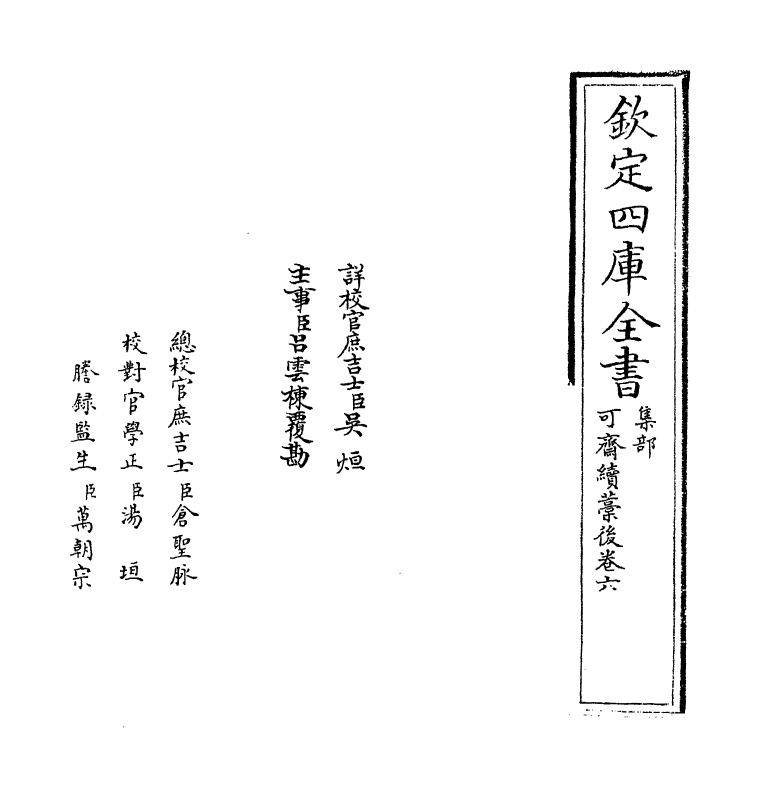 欽定四庫全書
集部
可齋續藁後卷六
詳校官庶吉士臣吳烜
主事臣呂雲棟覆勘
總校官庶吉士臣倉聖脉
校對官學正臣湯垣
謄録監生臣萬朝宗